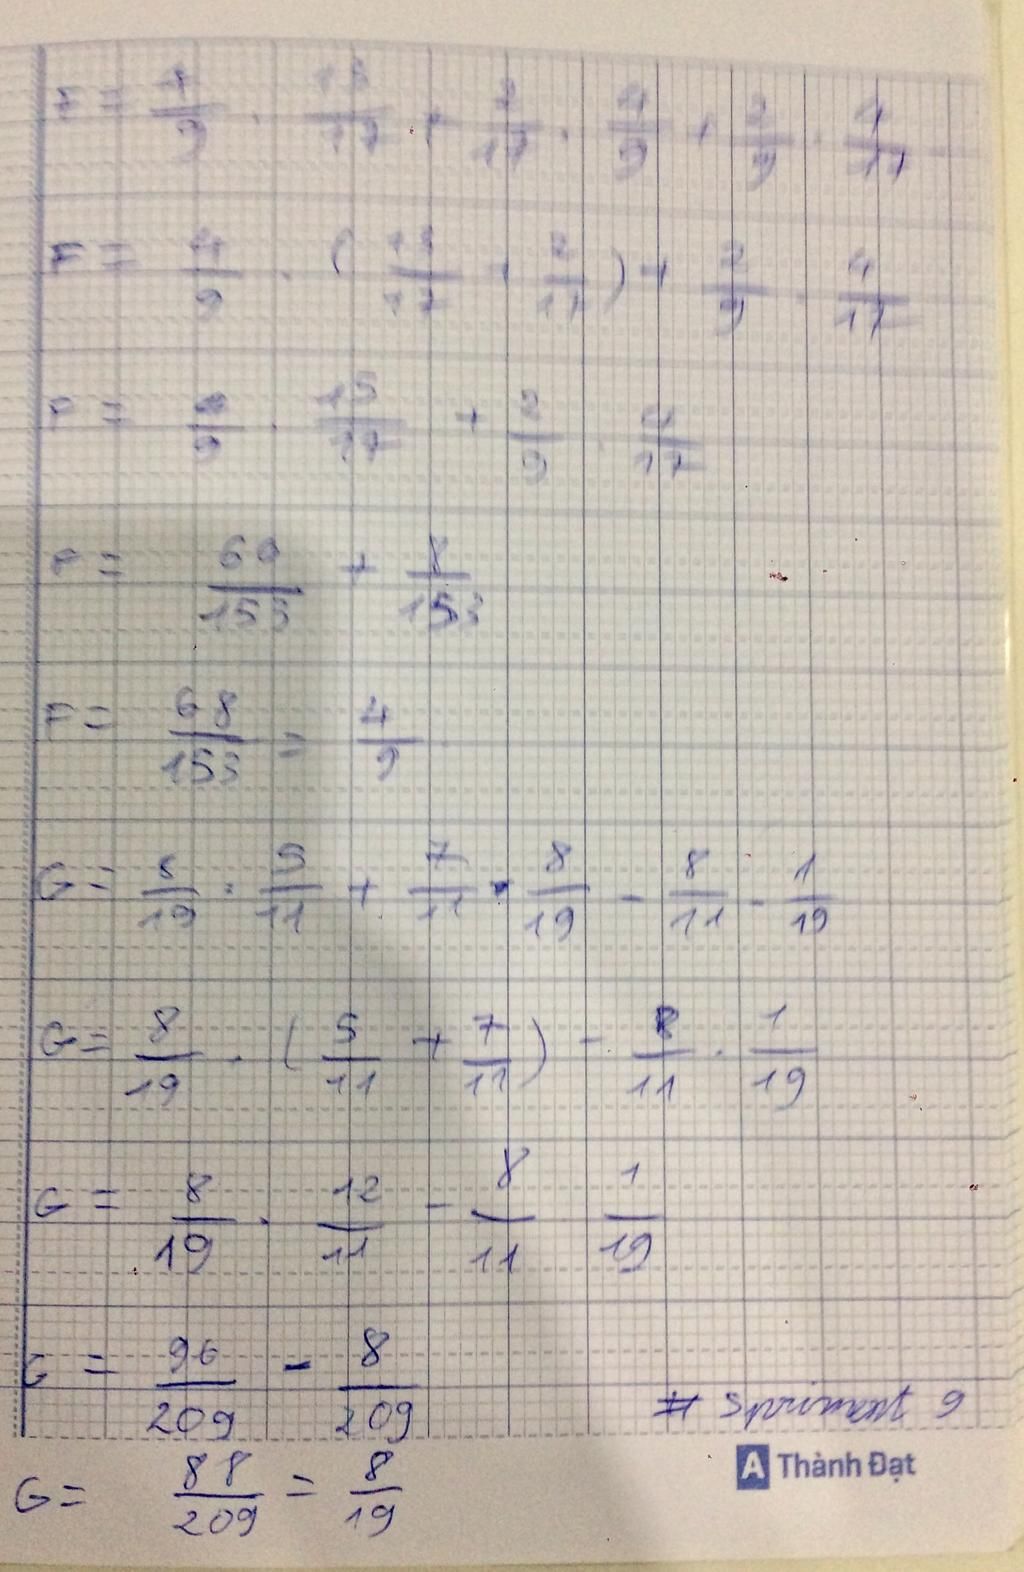 F = 4/9 . 13/17 + 2/17 . 4/9 + 2/9 . 4/17
F = 4/9 . ( 13/17 + 2/17 ) + 2/9 . 4/17
F = 4/9 . 15/17 + 2/9 . 4/17
F = 60/153 + 8/153
F = 68/153 = 4/9
G = 8/19 . 5/11 + 7/11 . 8/19 - 8/11 - 1/19
G = 8/19 . ( 5/11 + 7/11 ) - 8/11 . 1/19
G = 8/19 . 12/11 - 8/11 1/19
G = 96/209 - 8/209
# sprimont 9
G = 88/209 = 8/19
A Thành Đạt